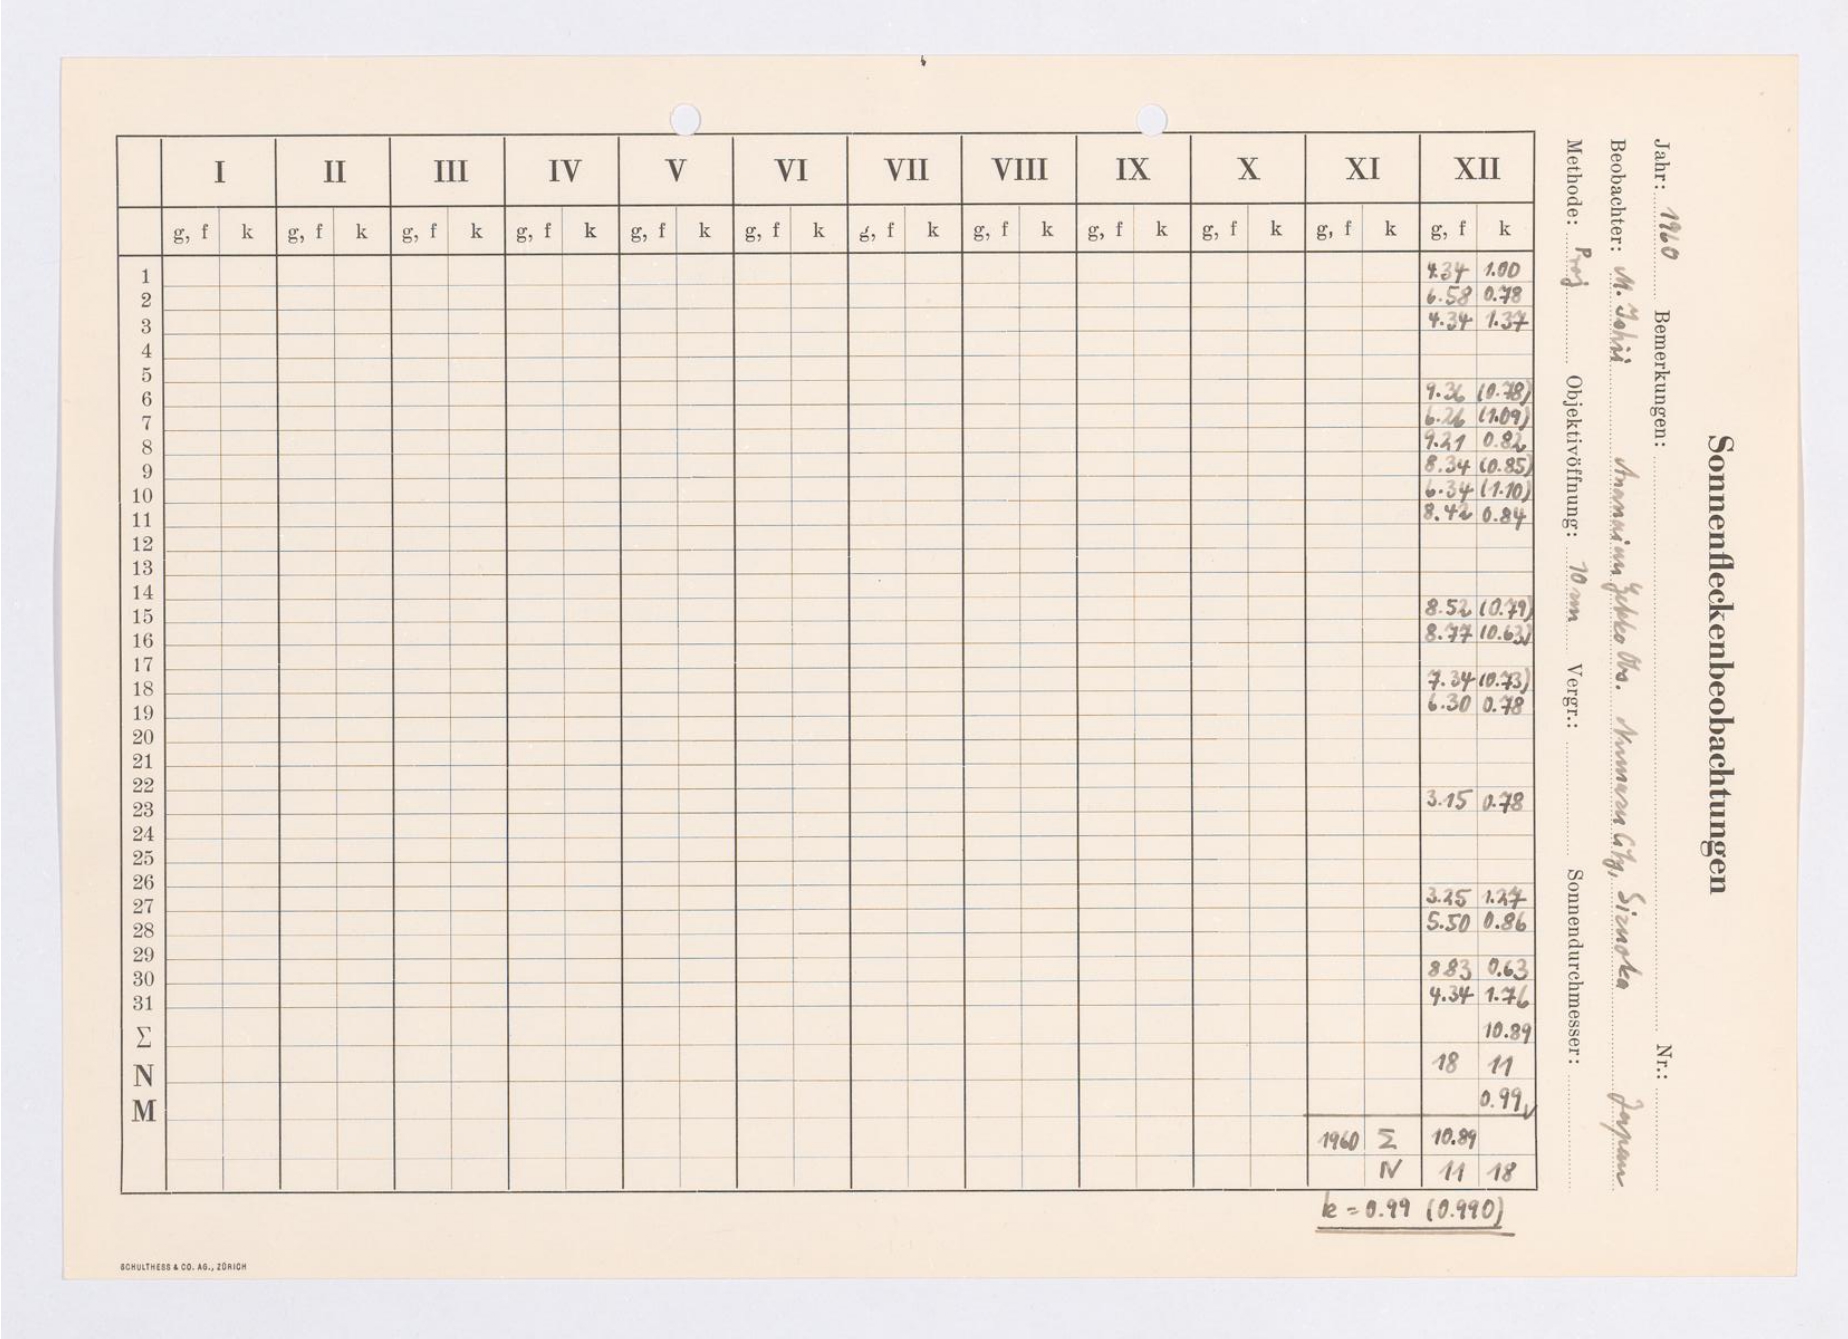 Sonnenfleckenbeobachtungen
Jahr: 1960 Bemerkungen: Nr.:
Beobachter: M. Obs. City, Japan
Methode: Proj Objektivöffnung: 10 Vergr.: Sonnendurchmesser:
I II III IV V VI VII VIII IX X XI XII
g, f k g, f k g, f k g, f k g, f k g, f k g, f k g, f k g, f k g, f k g, f k g, f k
1 4.34 1.00
2 6.58 0.78
3 4.34 1.37
4
5
6 9.36 (0.78)
7 6.26 (1.09)
8 9.21 0.82
9 8.34 (0.85)
10 6.34 (1.10)
11 8.42 0.84
12
13
14
15 8.52 (0.79)
16 8.77 (0.63)
17
18 7.34 (0.73)
19 6.30 0.78
20
21
22
23 3.15 0.78
24
25
26
27 3.25 1.27
28 5.50 0.86
29
30 8.83 0.63
31 4.34 1.76
Σ 10.89
N 18 11
M 0.99
1960 Σ 10.89
N 11 18
k = 0.99 (0.990)
SCHULTHESS & CO. AG., ZÜRICH